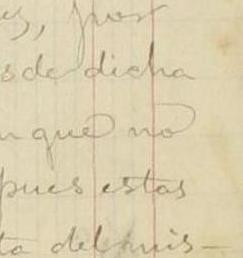 es, por
sde dicha
nque no
pues estas
to del mis-